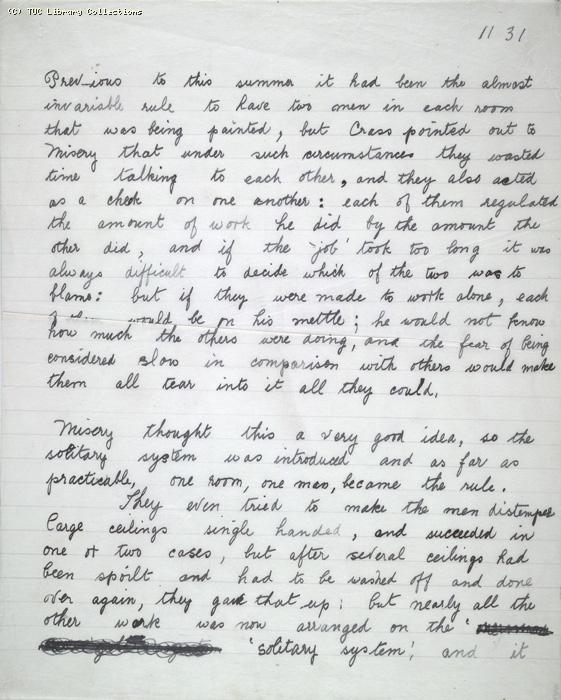 (C) TUC Library Collections
11 31
Previous to this summer it had been the almost
invariable rule to have two men in each room
that was being painted, but Crass pointed out to
Misery that under such circumstances they wasted
time talking to each other, and they also acted
as a check on one another: each of them regulated
the amount of work he did by the amount the
other did, and if the 'job' took too long it was
always difficult to decide which of the two was to
blame: but if they were made to work alone, each
would be on his mettle; he would not know
how much the others were doing, and the fear of being
considered slow in comparison with others would make
them all tear into it all they could.
Misery thought this a very good idea, so the
solitary system was introduced and as far as
practicable, one room, one man, became the rule.
They even tried to make the men distemper
large ceilings single handed, and succeeded in
one or two cases, but after several ceilings had
been spoilt and had to be washed off and done
over again, they gave that up: but nearly all the
other work was now arranged on the '
'solitary system', and it